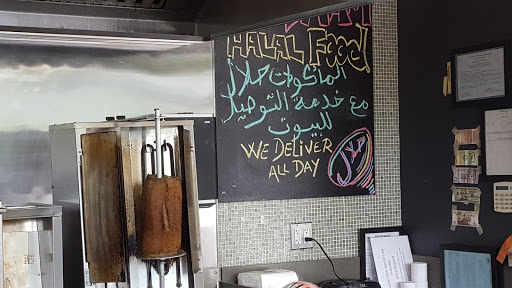 HALAL Food
المأكولات حلال
مع خدمة التوصيل
للبيوت
WE DELIVER
ALL DAY
حلال